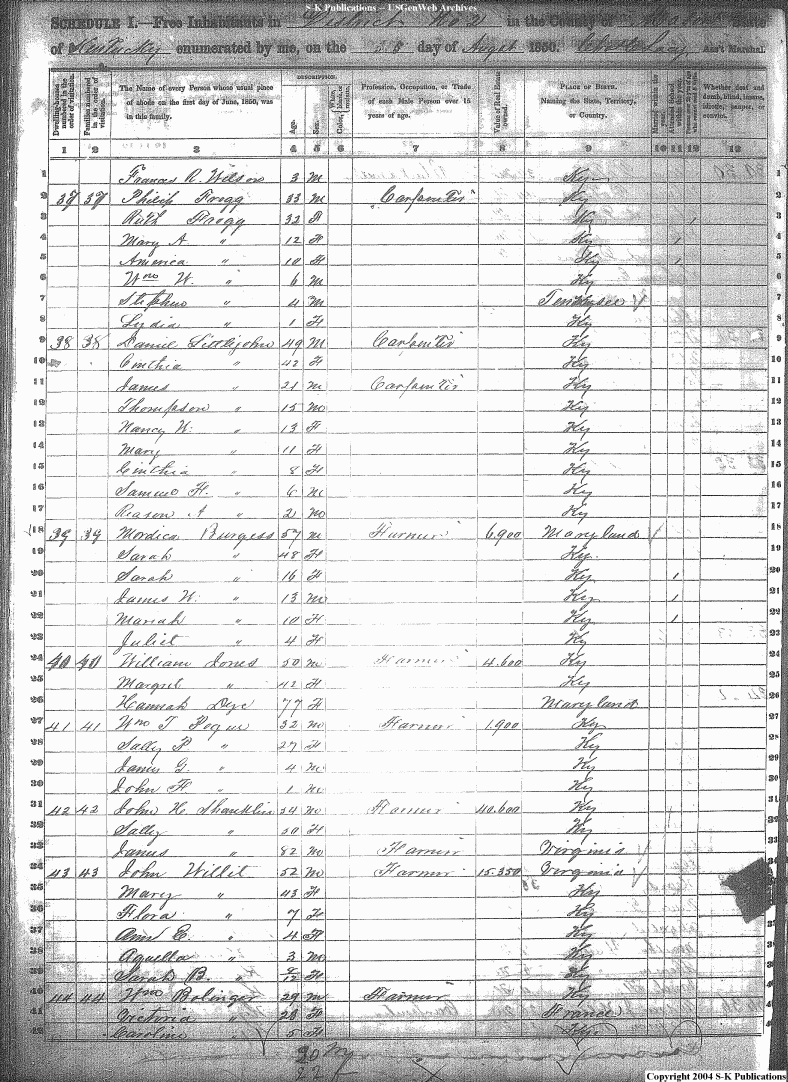 S-K Publications – USGenWeb Archives
SCHEDULE I.—Free Inhabitants in District No 2 in the County of Mason State
of Kentucky enumerated by me, on the day of August 1850. Ass't Marshal.
Dwelling-houses numbered in the order of visitation.
Families numbered in the order of visitation.
The Name of every Person whose usual place of abode on the first day of June, 1850, was in this family.
DESCRIPTION.
Age.
Sex.
Color, White, black, or mulatto.
Profession, Occupation, or Trade of each Male Person over 15 years of age.
Value of Real Estate owned.
PLACE OF BIRTH. Naming the State, Territory, or Country.
Whether deaf and dumb, blind, insane, idiotic, pauper, or convict.
1 2 3 4 5 6 7 8 9 10 11 12 13
1 Francis R. Wilson 3 M Ky
2 37 37 Philip Frogg 33 M Carpenter Ky
3 Ruth Frogg 32 F Ky 1
4 Mary A. " 12 F Ky 1
5 America " 10 F Ky 1
6 Wm W. " 6 M Ky
7 Stephen " 4 M Tennessee
8 Lydia " 1 F Ky
9 38 38 Daniel Littlejohn 49 M Carpenter Ky
10 Cinthia " 42 F Ky
11 James " 21 M Carpenter Ky
12 Thompson " 15 M Ky
13 Nancy W. " 13 F Ky
14 Mary " 11 F Ky
15 Cinthia " 8 F Ky
16 H. " 6 M Ky
17 Reason A " 2 M Ky
18 39 39 Mordica Burgess 57 M Farmer 6.900 Maryland
19 Sarah " 48 F Ky
20 Sarah " 16 F Ky 1
21 James W. " 13 M Ky 1
22 Mariah " 10 F Ky 1
23 Juliet " 4 F Ky
24 40 40 William Jones 50 M Farmer 4.600 Ky
25 Margret " 42 F Ky
26 Hannah Dye 77 F Maryland
27 41 41 Wm T Pogue 32 M Farmer 1.900 Ky
28 Sally P. " 27 F Ky
29 James G. " 4 M Ky
30 John F. " 1 M Ky
31 42 42 John H. Shanklin 54 M Farmer 40.600 Ky
32 Sally " 50 F Ky
33 James " 82 M Farmer Virginia
34 43 43 John Willit 52 M Farmer 15.350 Virginia
35 Mary " 43 F Ky
36 Flora " 7 F Ky
37 Ann E. " 4 F Ky
38 Aquella " 3 M Ky
39 Sarah B. " F Ky
40 44 44 Wm Bolinger 29 M Farmer Ky
41 Victoria " 28 F France
42 Caroline " 5 F
20 M
22 F
Copyright 2004 S-K Publications